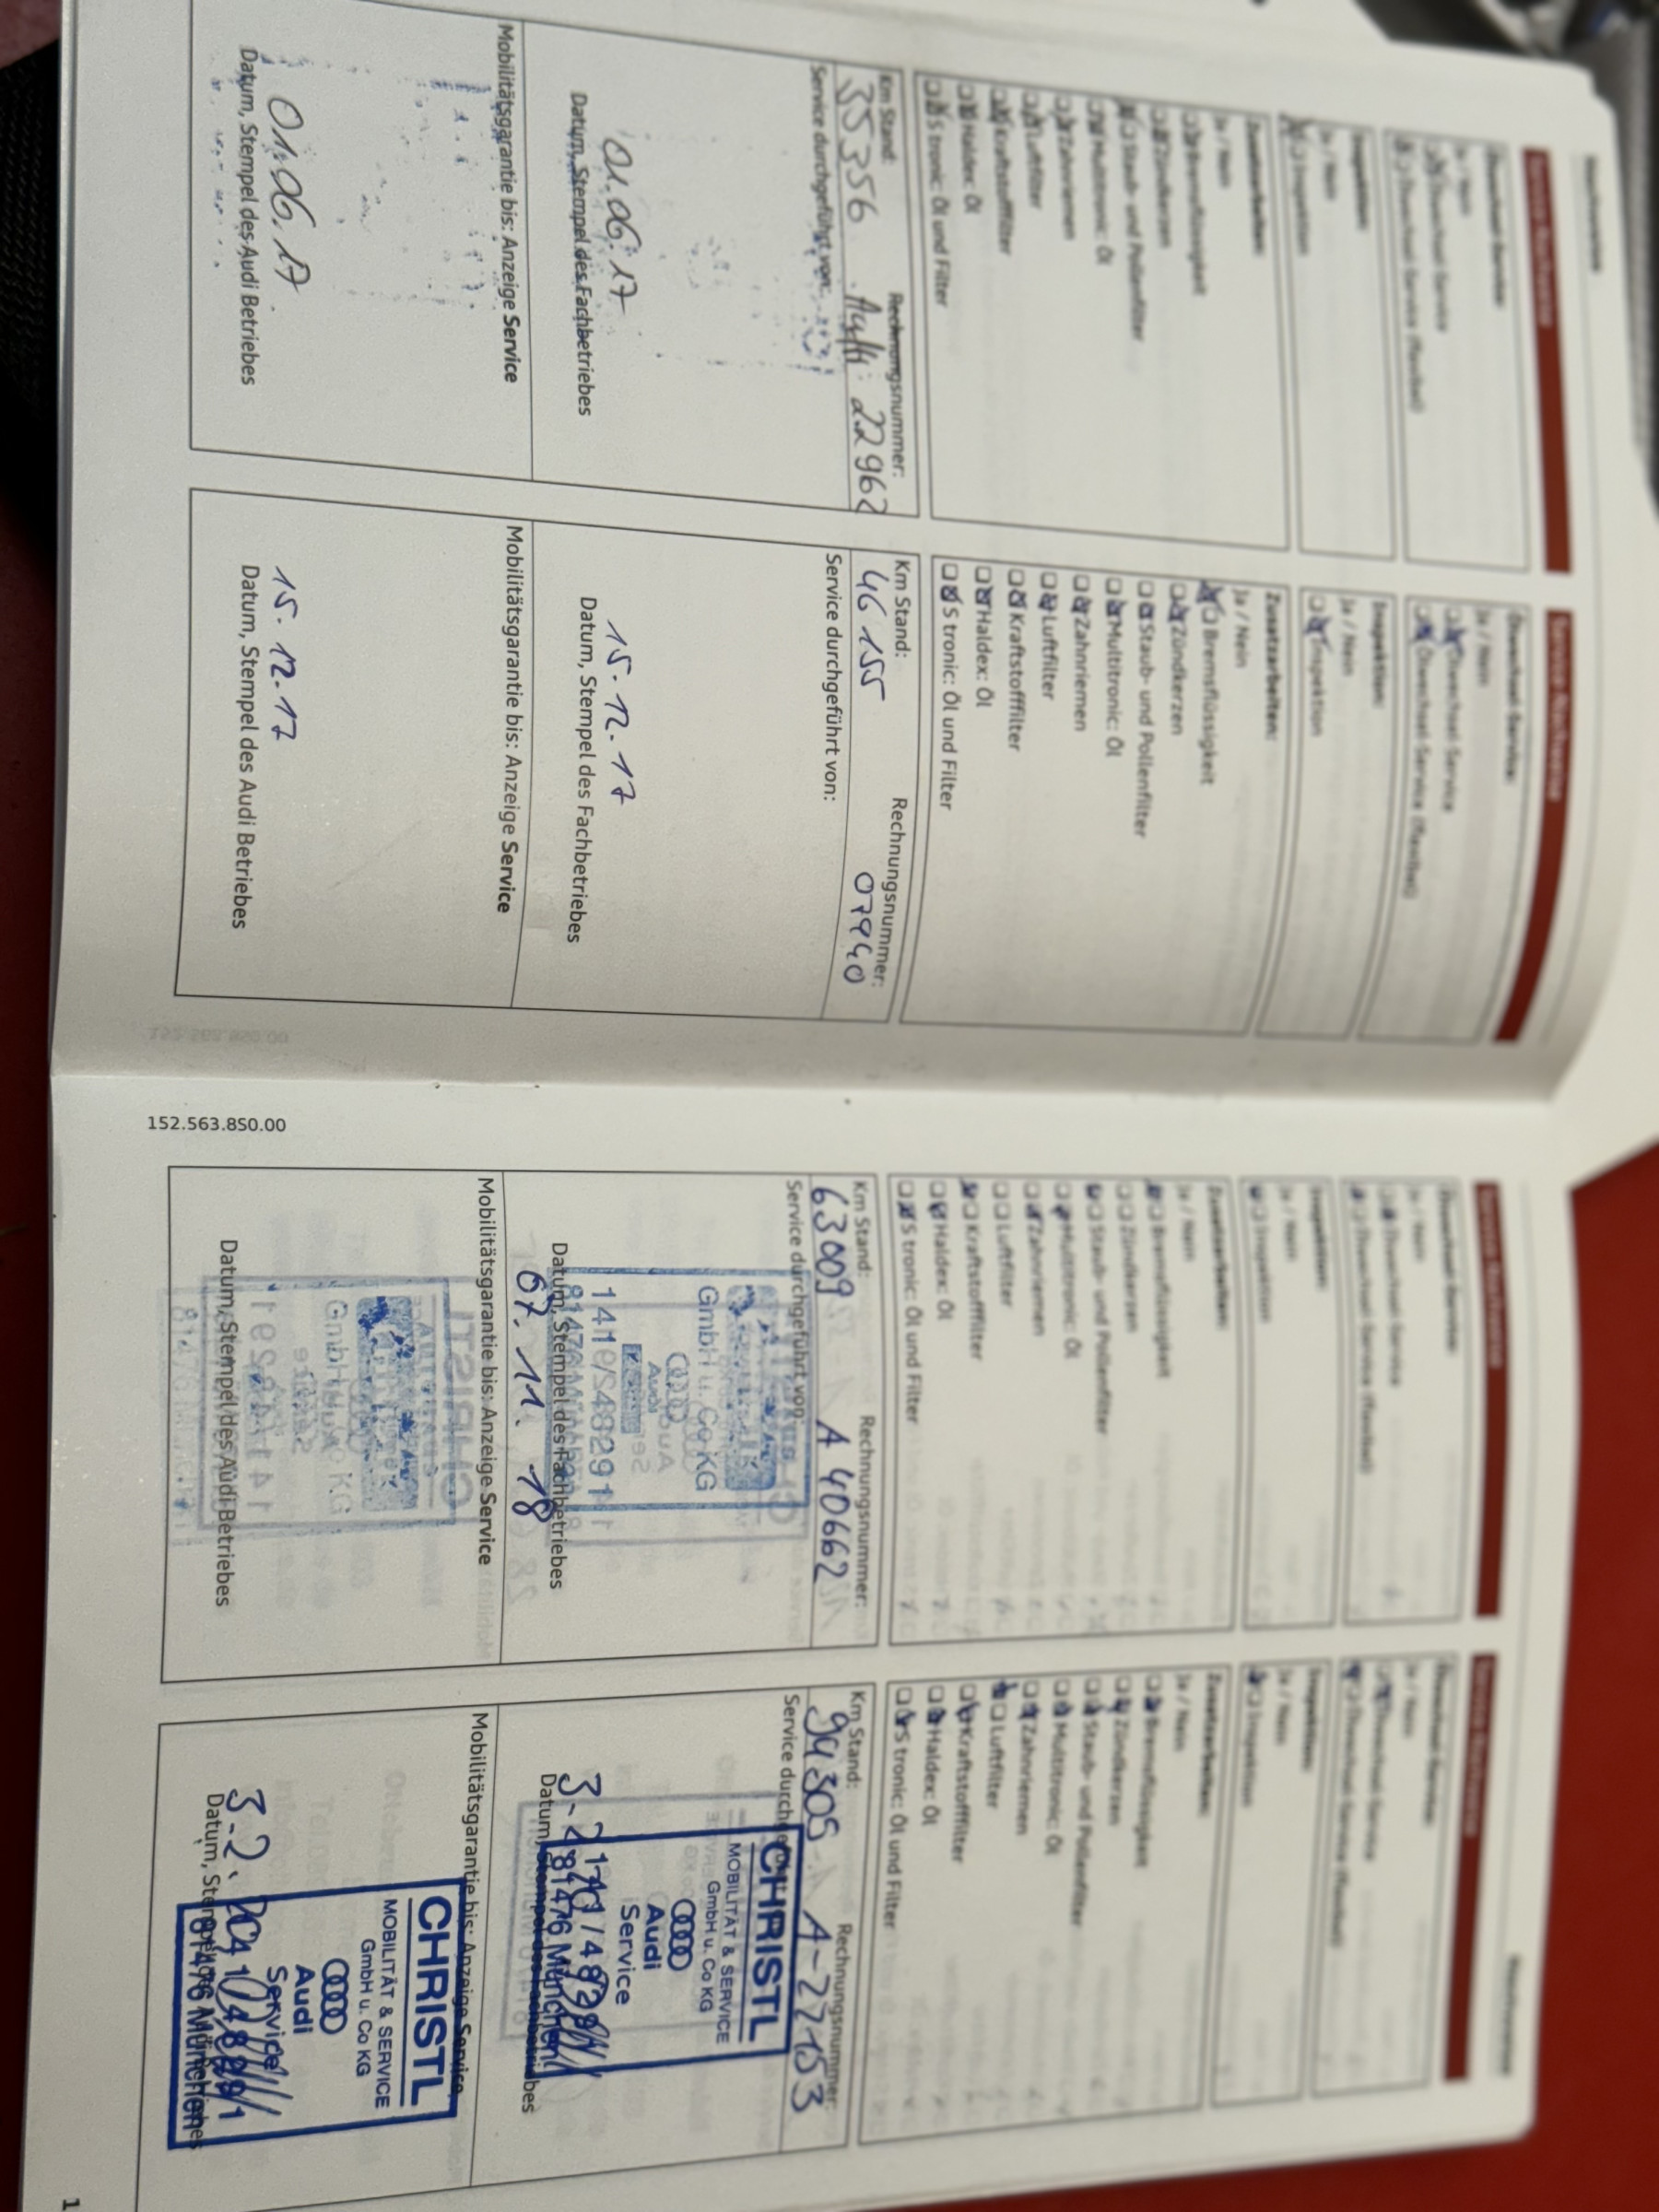 Service-Nachweise
Ölwechsel-Service:
Ja / Nein
Ölwechsel-Service
Ölwechsel-Service (flexibel)
Inspektion:
Ja / Nein
Inspektion
Zusatzarbeiten:
Ja / Nein
Bremsflüssigkeit
Zündkerzen
Staub- und Pollenfilter
Multitronic: Öl
Zahnriemen
Luftfilter
Kraftstofffilter
Haldex: Öl
S tronic: Öl und Filter
Km Stand: Rechnungsnummer:
35356 22962
Service durchgeführt von:
01.06.17
Datum, Stempel des Fachbetriebes
Mobilitätsgarantie bis: Anzeige Service
01.06.17
Datum, Stempel des Audi Betriebes
Service-Nachweise
Ölwechsel-Service:
Ja / Nein
Ölwechsel-Service
Ölwechsel-Service (flexibel)
Inspektion:
Ja / Nein
Inspektion
Zusatzarbeiten:
Ja / Nein
Bremsflüssigkeit
Zündkerzen
Staub- und Pollenfilter
Multitronic: Öl
Zahnriemen
Luftfilter
Kraftstofffilter
Haldex: Öl
S tronic: Öl und Filter
Km Stand: Rechnungsnummer:
46155 07940
Service durchgeführt von:
15.12.17
Datum, Stempel des Fachbetriebes
Mobilitätsgarantie bis: Anzeige Service
15.12.17
Datum, Stempel des Audi Betriebes
152.563.8S0.00
Service-Nachweise
Ölwechsel-Service:
Ja / Nein
Ölwechsel-Service
Ölwechsel-Service (flexibel)
Inspektion:
Ja / Nein
Inspektion
Zusatzarbeiten:
Ja / Nein
Bremsflüssigkeit
Zündkerzen
Staub- und Pollenfilter
Multitronic: Öl
Zahnriemen
Luftfilter
Kraftstofffilter
Haldex: Öl
S tronic: Öl und Filter
Km Stand: Rechnungsnummer:
63009 A 40662
Service durchgeführt von:
GmbH u. Co KG
Audi
Datum, Stempel des Fachbetriebes
07.11.18
Mobilitätsgarantie bis: Anzeige Service
GmbH u. Co KG
Datum, Stempel des Audi Betriebes
Service-Nachweise
Ölwechsel-Service:
Ja / Nein
Ölwechsel-Service
Ölwechsel-Service (flexibel)
Inspektion:
Ja / Nein
Inspektion
Zusatzarbeiten:
Ja / Nein
Bremsflüssigkeit
Zündkerzen
Staub- und Pollenfilter
Multitronic: Öl
Zahnriemen
Luftfilter
Kraftstofffilter
Haldex: Öl
S tronic: Öl und Filter
Km Stand: Rechnungsnummer:
94305 A-22153
Service durchgeführt
CHRISTL
MOBILITÄT & SERVICE
GmbH u. Co KG
Audi
Service
81476 München
Datum, Stempel des Fachbetriebes
Mobilitätsgarantie bis: Anzeige Service
CHRISTL
MOBILITÄT & SERVICE
GmbH u. Co KG
Audi
Service
3.2.
81476 München
Datum, Stempel des Audi Betriebes
1